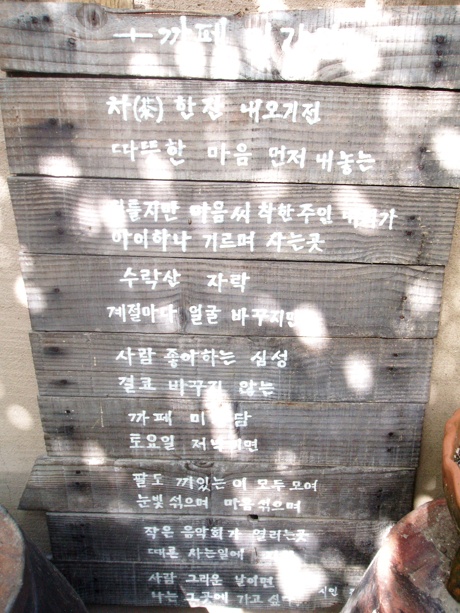 까페
차(茶) 한잔 내오기전
따뜻한 마음 먼저 내놓는
마음씨 착한주인
아이하나 기르며 사는곳
수락산 자락
계절마다 얼굴 바꾸지만
사람 좋아하는 심성
결코 바꾸지 않는
까페
토요일
팔도 끼있는이 모두모여
눈빛 섞으며 마음 섞으며
작은 음악회가 열리는곳
때론 사는일에
사람 그리운 날이면
나는 그곳에 가고 싶다